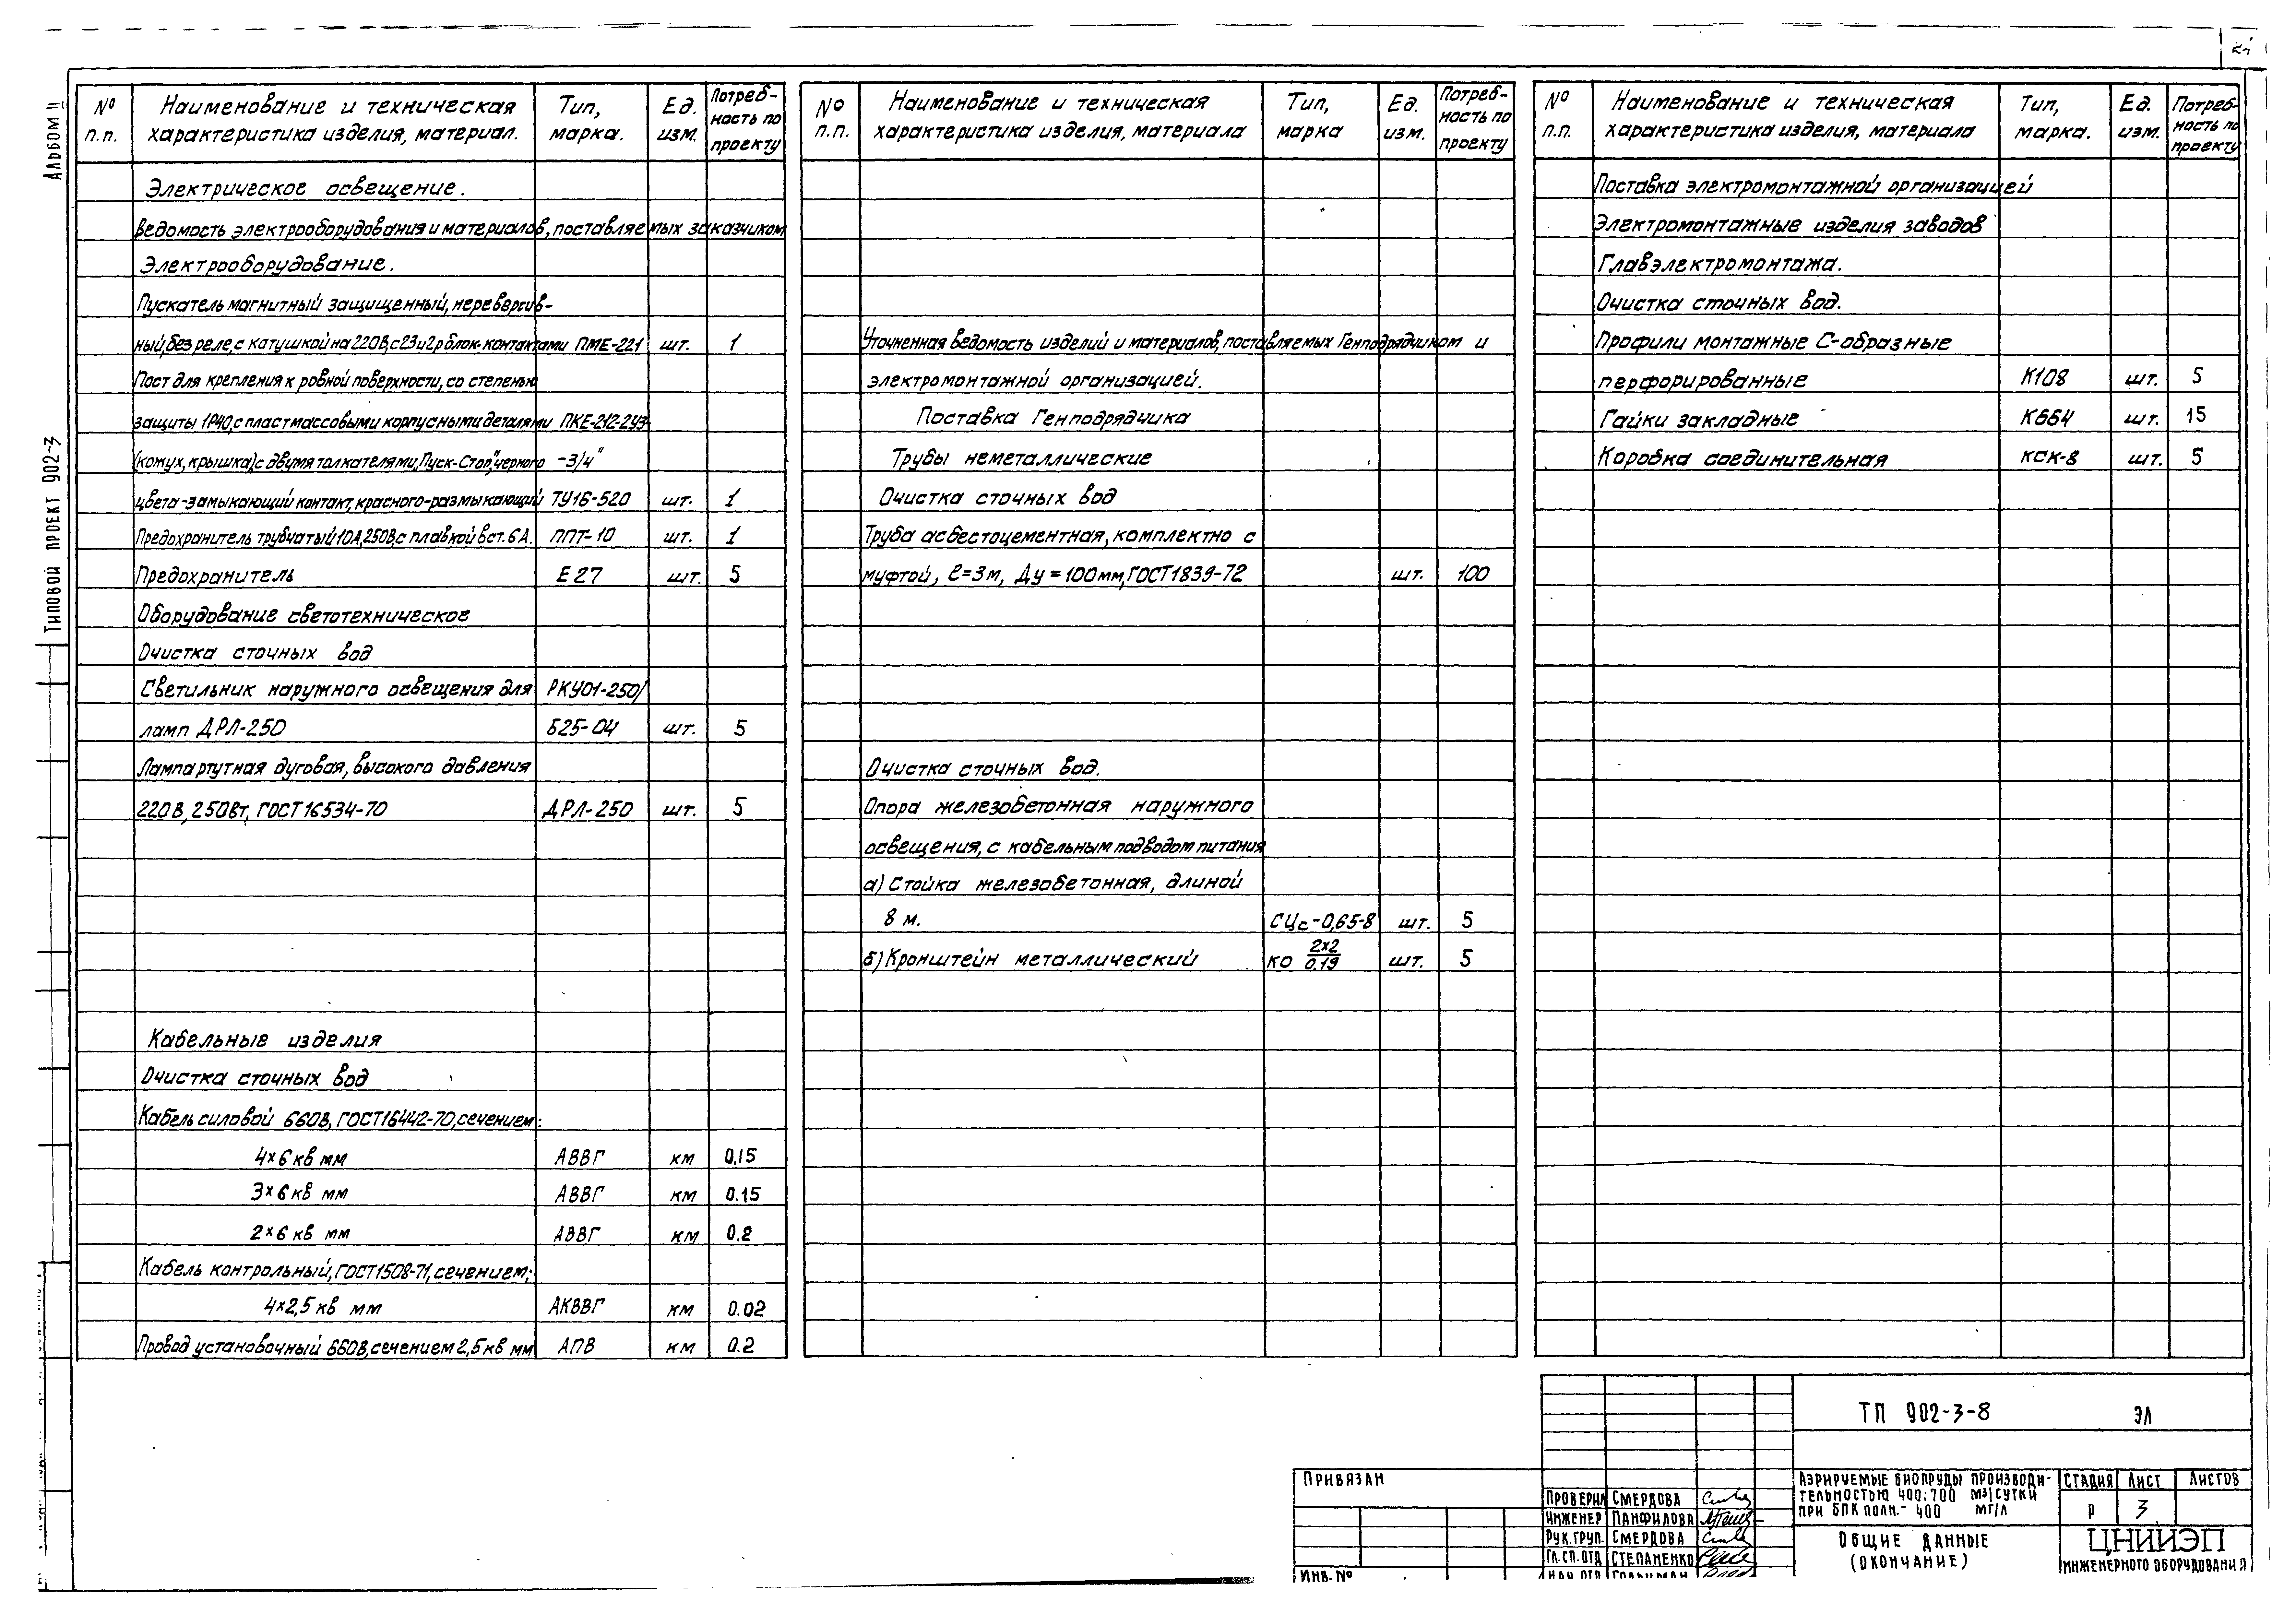 Альбом II
Типовой проект 902-3
№ п.п.
Наименование и техническая характеристика изделия, материал.
Тип, марка.
Ед. изм.
Потреб-ность по проекту
Электрическое освещение.
Ведомость электрооборудования и материалов, поставляемых заказчиком
Электрооборудование.
Пускатель магнитный защищенный, нереверсив-
ный, без реле, с катушкой на 220В, с 2з и 2р блок-контактами ПМЕ-221 шт. 1
Пост для крепления к ровной поверхности, со степенью
защиты IP40, с пластмассовыми корпусными деталями ПКЕ-212-2У3-
(кожух, крышка), с двумя толкателями "Пуск-Стоп", черного -3/4"
цвета-замыкающий контакт, красного-размыкающий ТУ16-520 шт. 1
Предохранитель трубчатый 10А, 250В, с плавкой вст. 6А. ППТ-10 шт. 1
Предохранитель Е27 шт. 5
Оборудование светотехническое
Очистка сточных вод
Светильник наружного освещения для РКУ01-250/
ламп ДРЛ-250 Б25-04 шт. 5
Лампа ртутная дуговая, высокого давления
220В, 250Вт, ГОСТ 16534-70 ДРЛ-250 шт. 5
Кабельные изделия
Очистка сточных вод
Кабель силовой 660В, ГОСТ 16442-70, сечением:
4×6 кв мм АВВГ км 0,15
3×6 кв мм АВВГ км 0.15
2×6 кв мм АВВГ км 0.2
Кабель контрольный, ГОСТ 1508-71, сечением;
4×2,5 кв мм АКВВГ км 0.02
Провод установочный 660В, сечением 2,5 кв мм АПВ км 0.2
№ п.п.
Наименование и техническая характеристика изделия, материала
Тип, марка
Ед. изм.
Потреб-ность по проекту
Уточненная ведомость изделий и материалов, поставляемых Генподрядчиком и
электромонтажной организацией.
Поставка Генподрядчика
Трубы неметаллические
Очистка сточных вод
Труба асбестоцементная, комплектно с
муфтой, ℓ=3м, Ду=100мм, ГОСТ 1839-72 шт. 100
Очистка сточных вод.
Опора железобетонная наружного
освещения, с кабельным подводом питания
а) Стойка железобетонная, длиной
8 м. СЦс-0,65-8 шт. 5
б) Кронштейн металлический КО 2×2/0.19 шт. 5
№ п.п.
Наименование и техническая характеристика изделия, материала
Тип, марка.
Ед. изм.
Потреб-ность по проекту
Поставка электромонтажной организацией
Электромонтажные изделия заводов
Главэлектромонтажа.
Очистка сточных вод.
Профили монтажные С-образные
перфорированные К108 шт. 5
Гайки закладные К664 шт. 15
Коробка соединительная КСК-8 шт. 5
Привязан
Инв. №
Проверил Смердова
Инженер Панфилова
Рук.груп. Смердова
Гл.сп.отд Степаненко
ТП 902-3-8 ЭЛ
Аэрируемые биопруды производи-
тельностью 400; 700 м3/сутки
при БПК полн.- 400 мг/л
Стадия Лист Листов
Р 3
Общие данные
(окончание)
ЦНИИЭП
инженерного оборудования